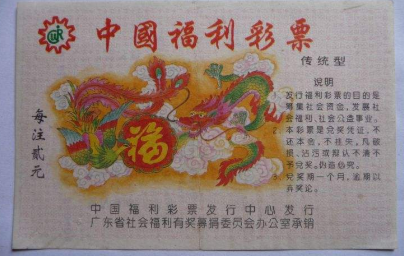 中國福利彩票
传统型
说明
1. 发行福利彩票的目的是
筹集社会资金，发展社
会福利、社会公益事业。
2. 本彩票是兑奖凭证，不
还本金，不挂失，凡破
损、沾污或辩认不清不
予兑奖。伪造必究。
3. 兑奖期一个月，逾期以
弃奖论。
每注贰元
福
中国福利彩票发行中心发行
广东省社会福利有奖募捐委员会办公室承销